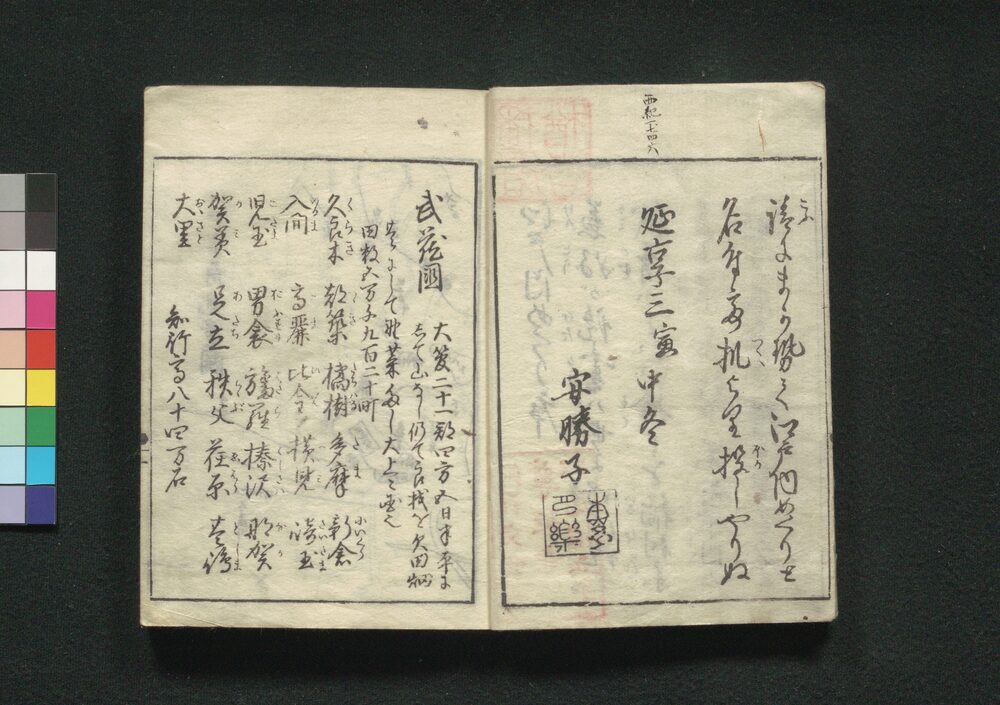 西紀一七四六
請にまかせて江戸内めくりと
名付て机上より投しやりぬ
延享三寅中冬
安勝子
武蔵国
大管二十一郡四方五日半平に
して山なし仍て良材を欠田畑
ましして野菜多し大上々国也
田数五万千九百二十町
久良木 都築 橘樹 多摩 新倉
入間 高麗 比企 横見 埼玉
児玉 男衾 旛羅 榛沢 那賀
賀美 足立 秩父 荏原 豊嶋
大里
知行高八十四万石